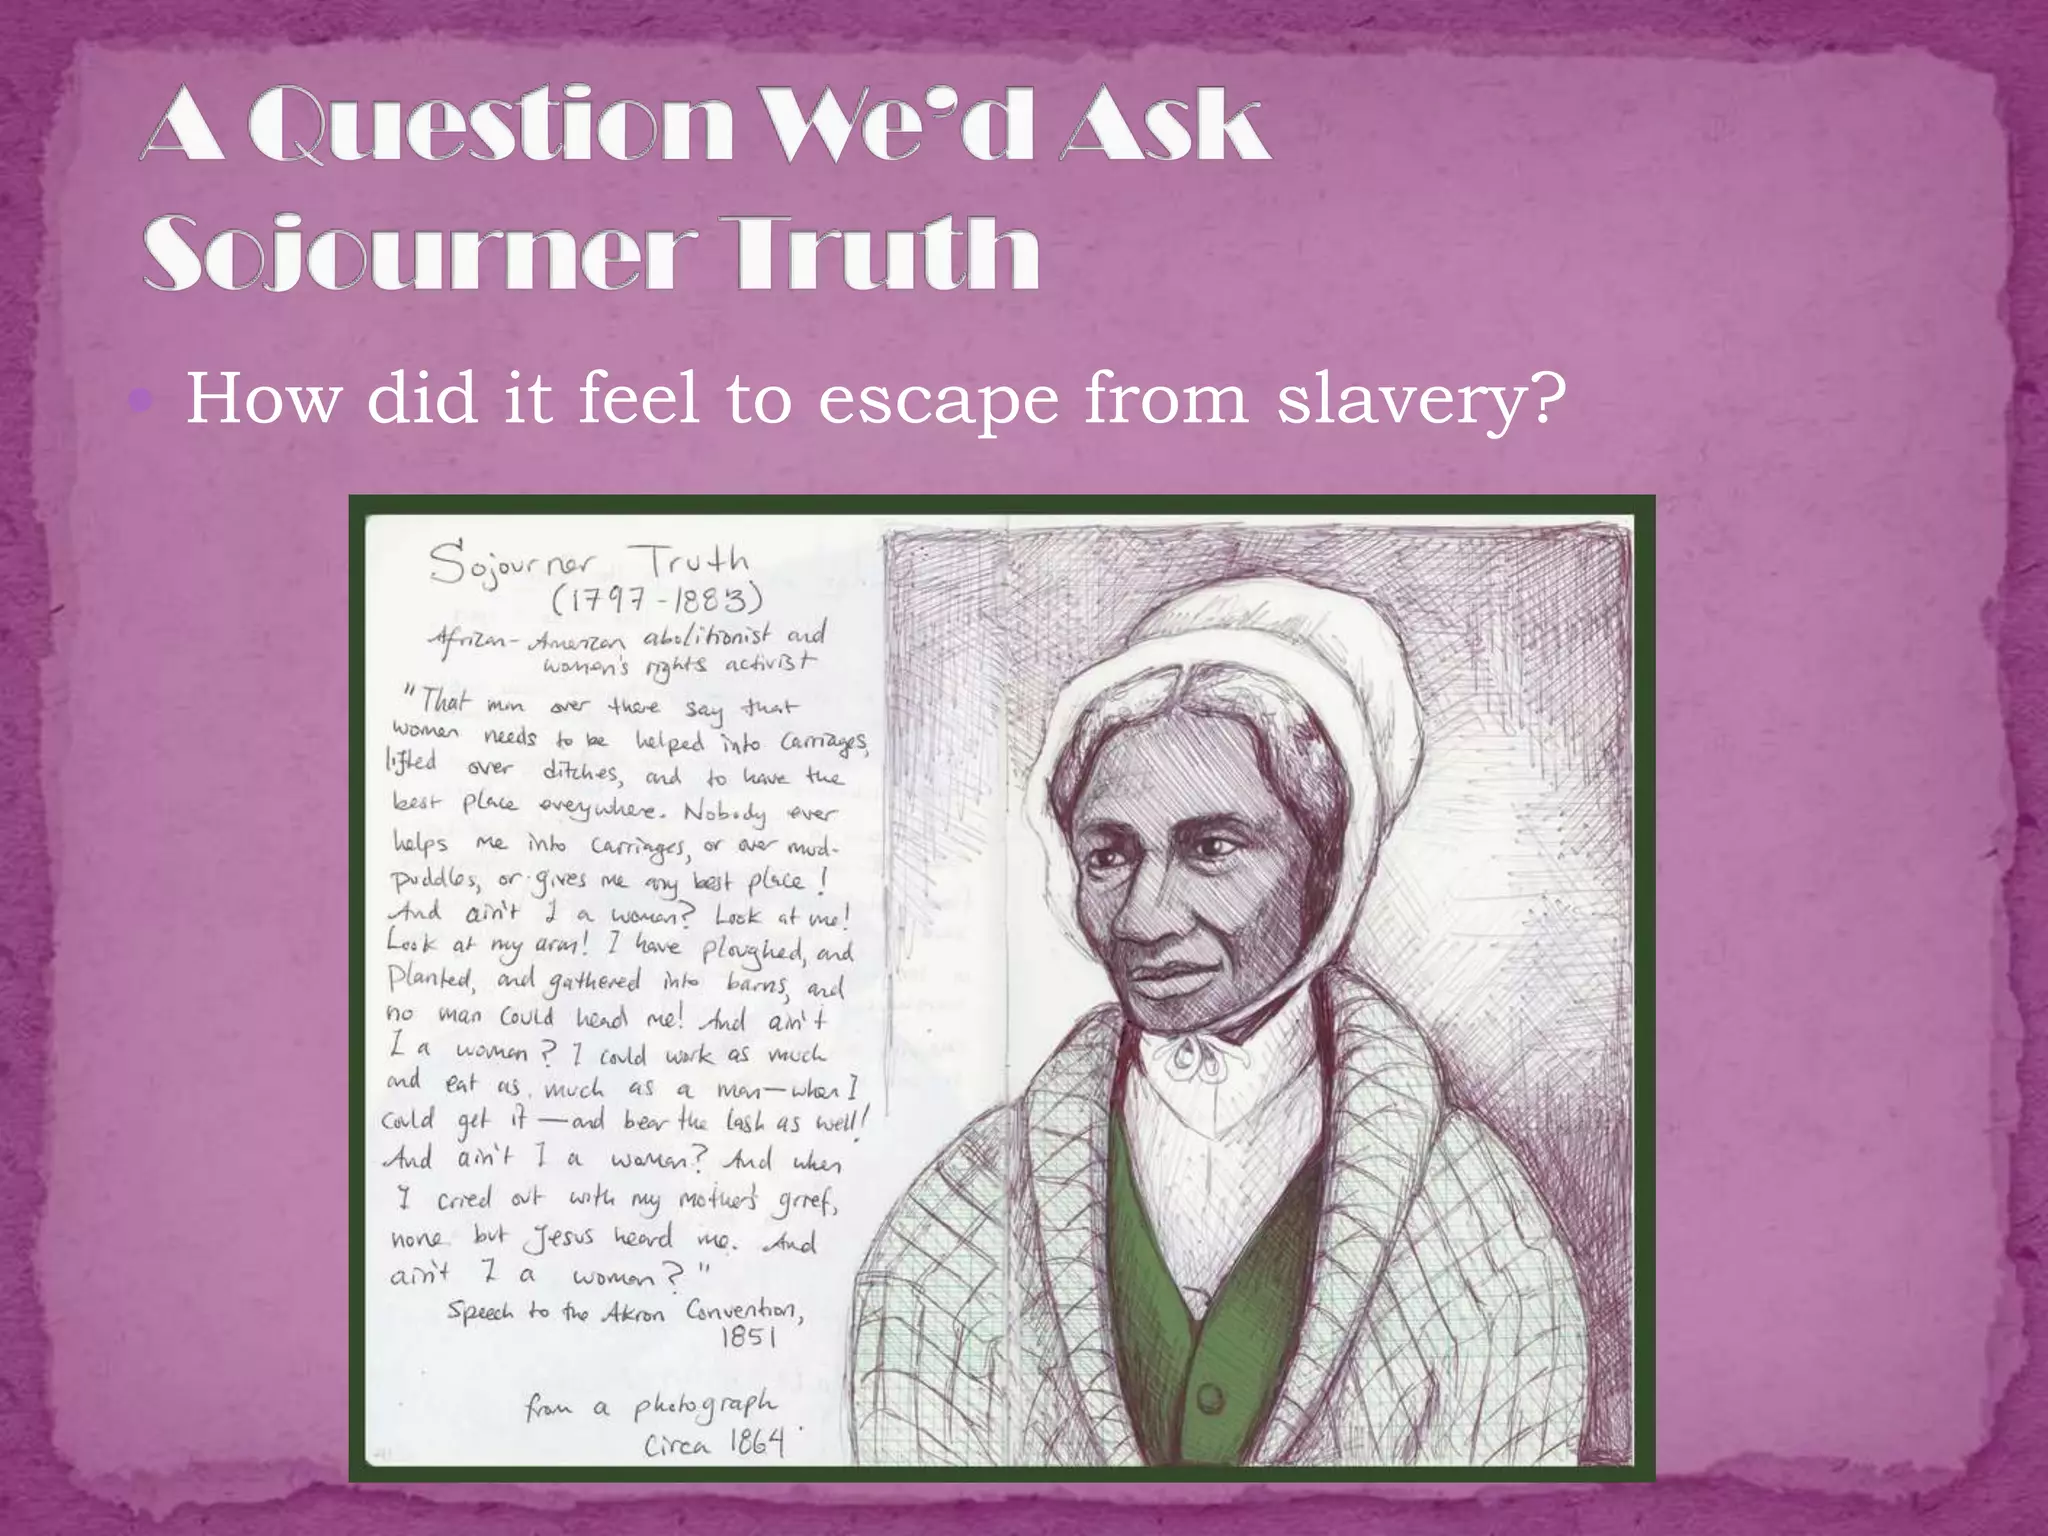 A Question We'd Ask
Sojourner Truth
• How did it feel to escape from slavery?
Sojourner Truth
(1797-1883)
African-American abolitionist and
women's rights activist
"That man over there say that
women needs to be helped into carriages,
lifted over ditches, and to have the
best place everywhere. Nobody ever
helps me into carriages, or over mud-
puddles, or gives me any best place!
And ain't I a woman? Look at me!
Look at my arm! I have ploughed, and
planted, and gathered into barns, and
no man could head me! And ain't
I a woman? I could work as much
and eat as much as a man—when I
could get it—and bear the lash as well!
And ain't I a woman? And when
I cried out with my mother's grief,
none but Jesus heard me. And
ain't I a woman?"
Speech to the Akron Convention,
1851
from a photograph
circa 1864.